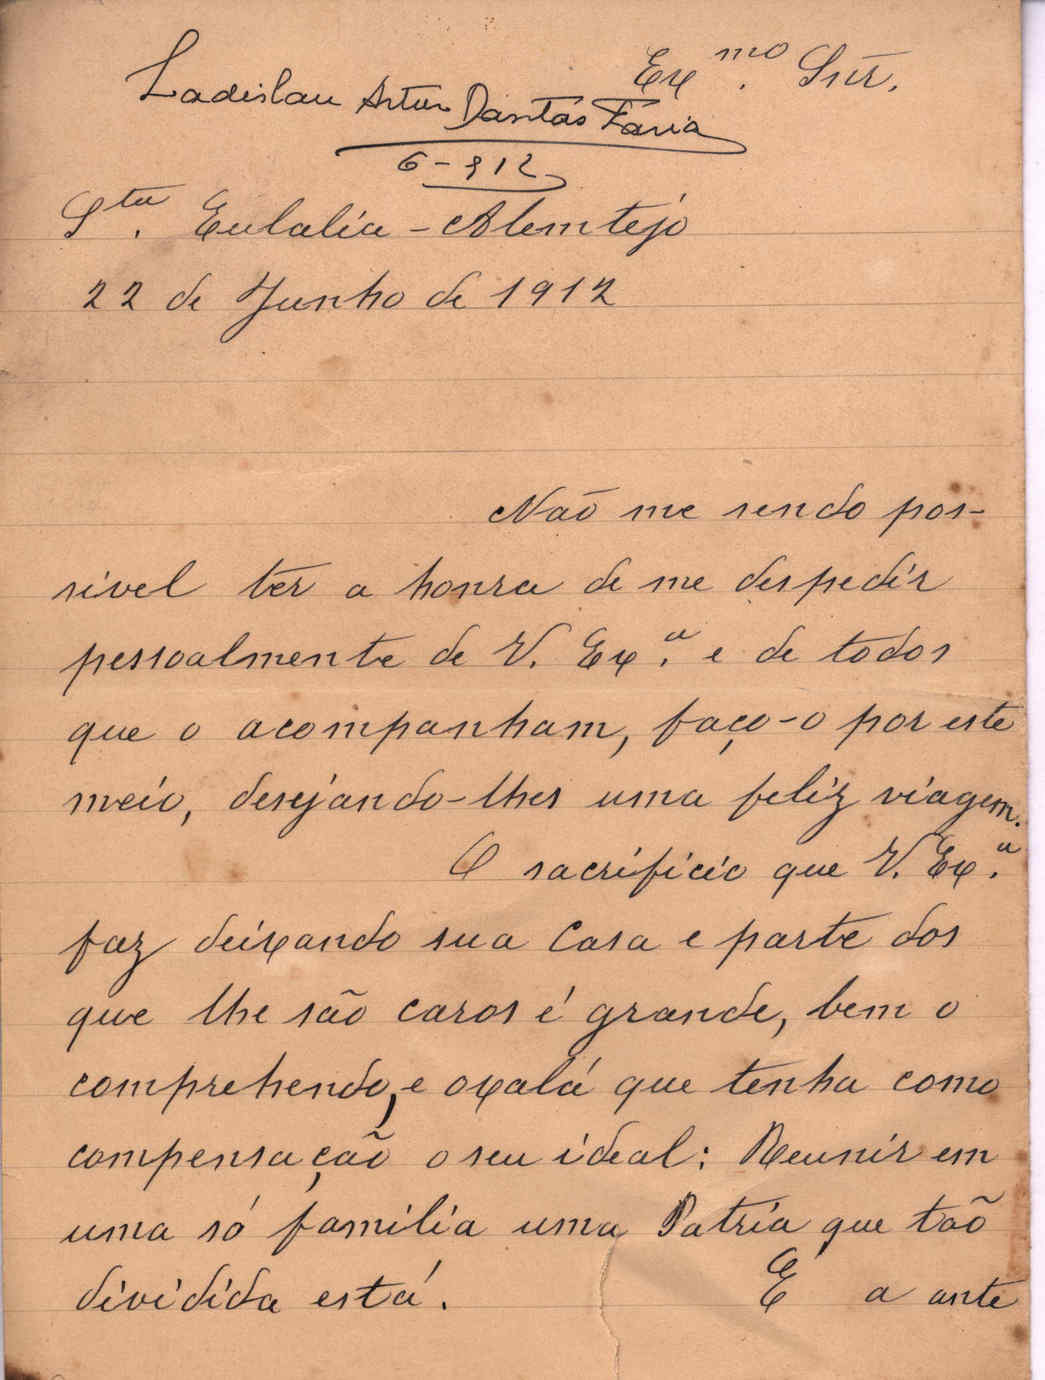 Exmo. Snr.
Ladislau Artur Dantas Faria
6-912
Sta. Eulalia - Alemtejo
22 de Junho de 1912
Não me sendo pos-
sivel ter a honra de me despedir
pessoalmente de V. Exa. e de todos
que o acompanham, faço-o por este
meio, desejando-lhes uma feliz viagem.
O sacrificio que V. Exa.
faz deixando sua Casa e parte dos
que lhe são caros é grande, bem o
comprehendo, e oxalá que tenha como
compensação o seu ideal: Reunir em
uma só familia uma Patria que tão
dividida está. É a ante